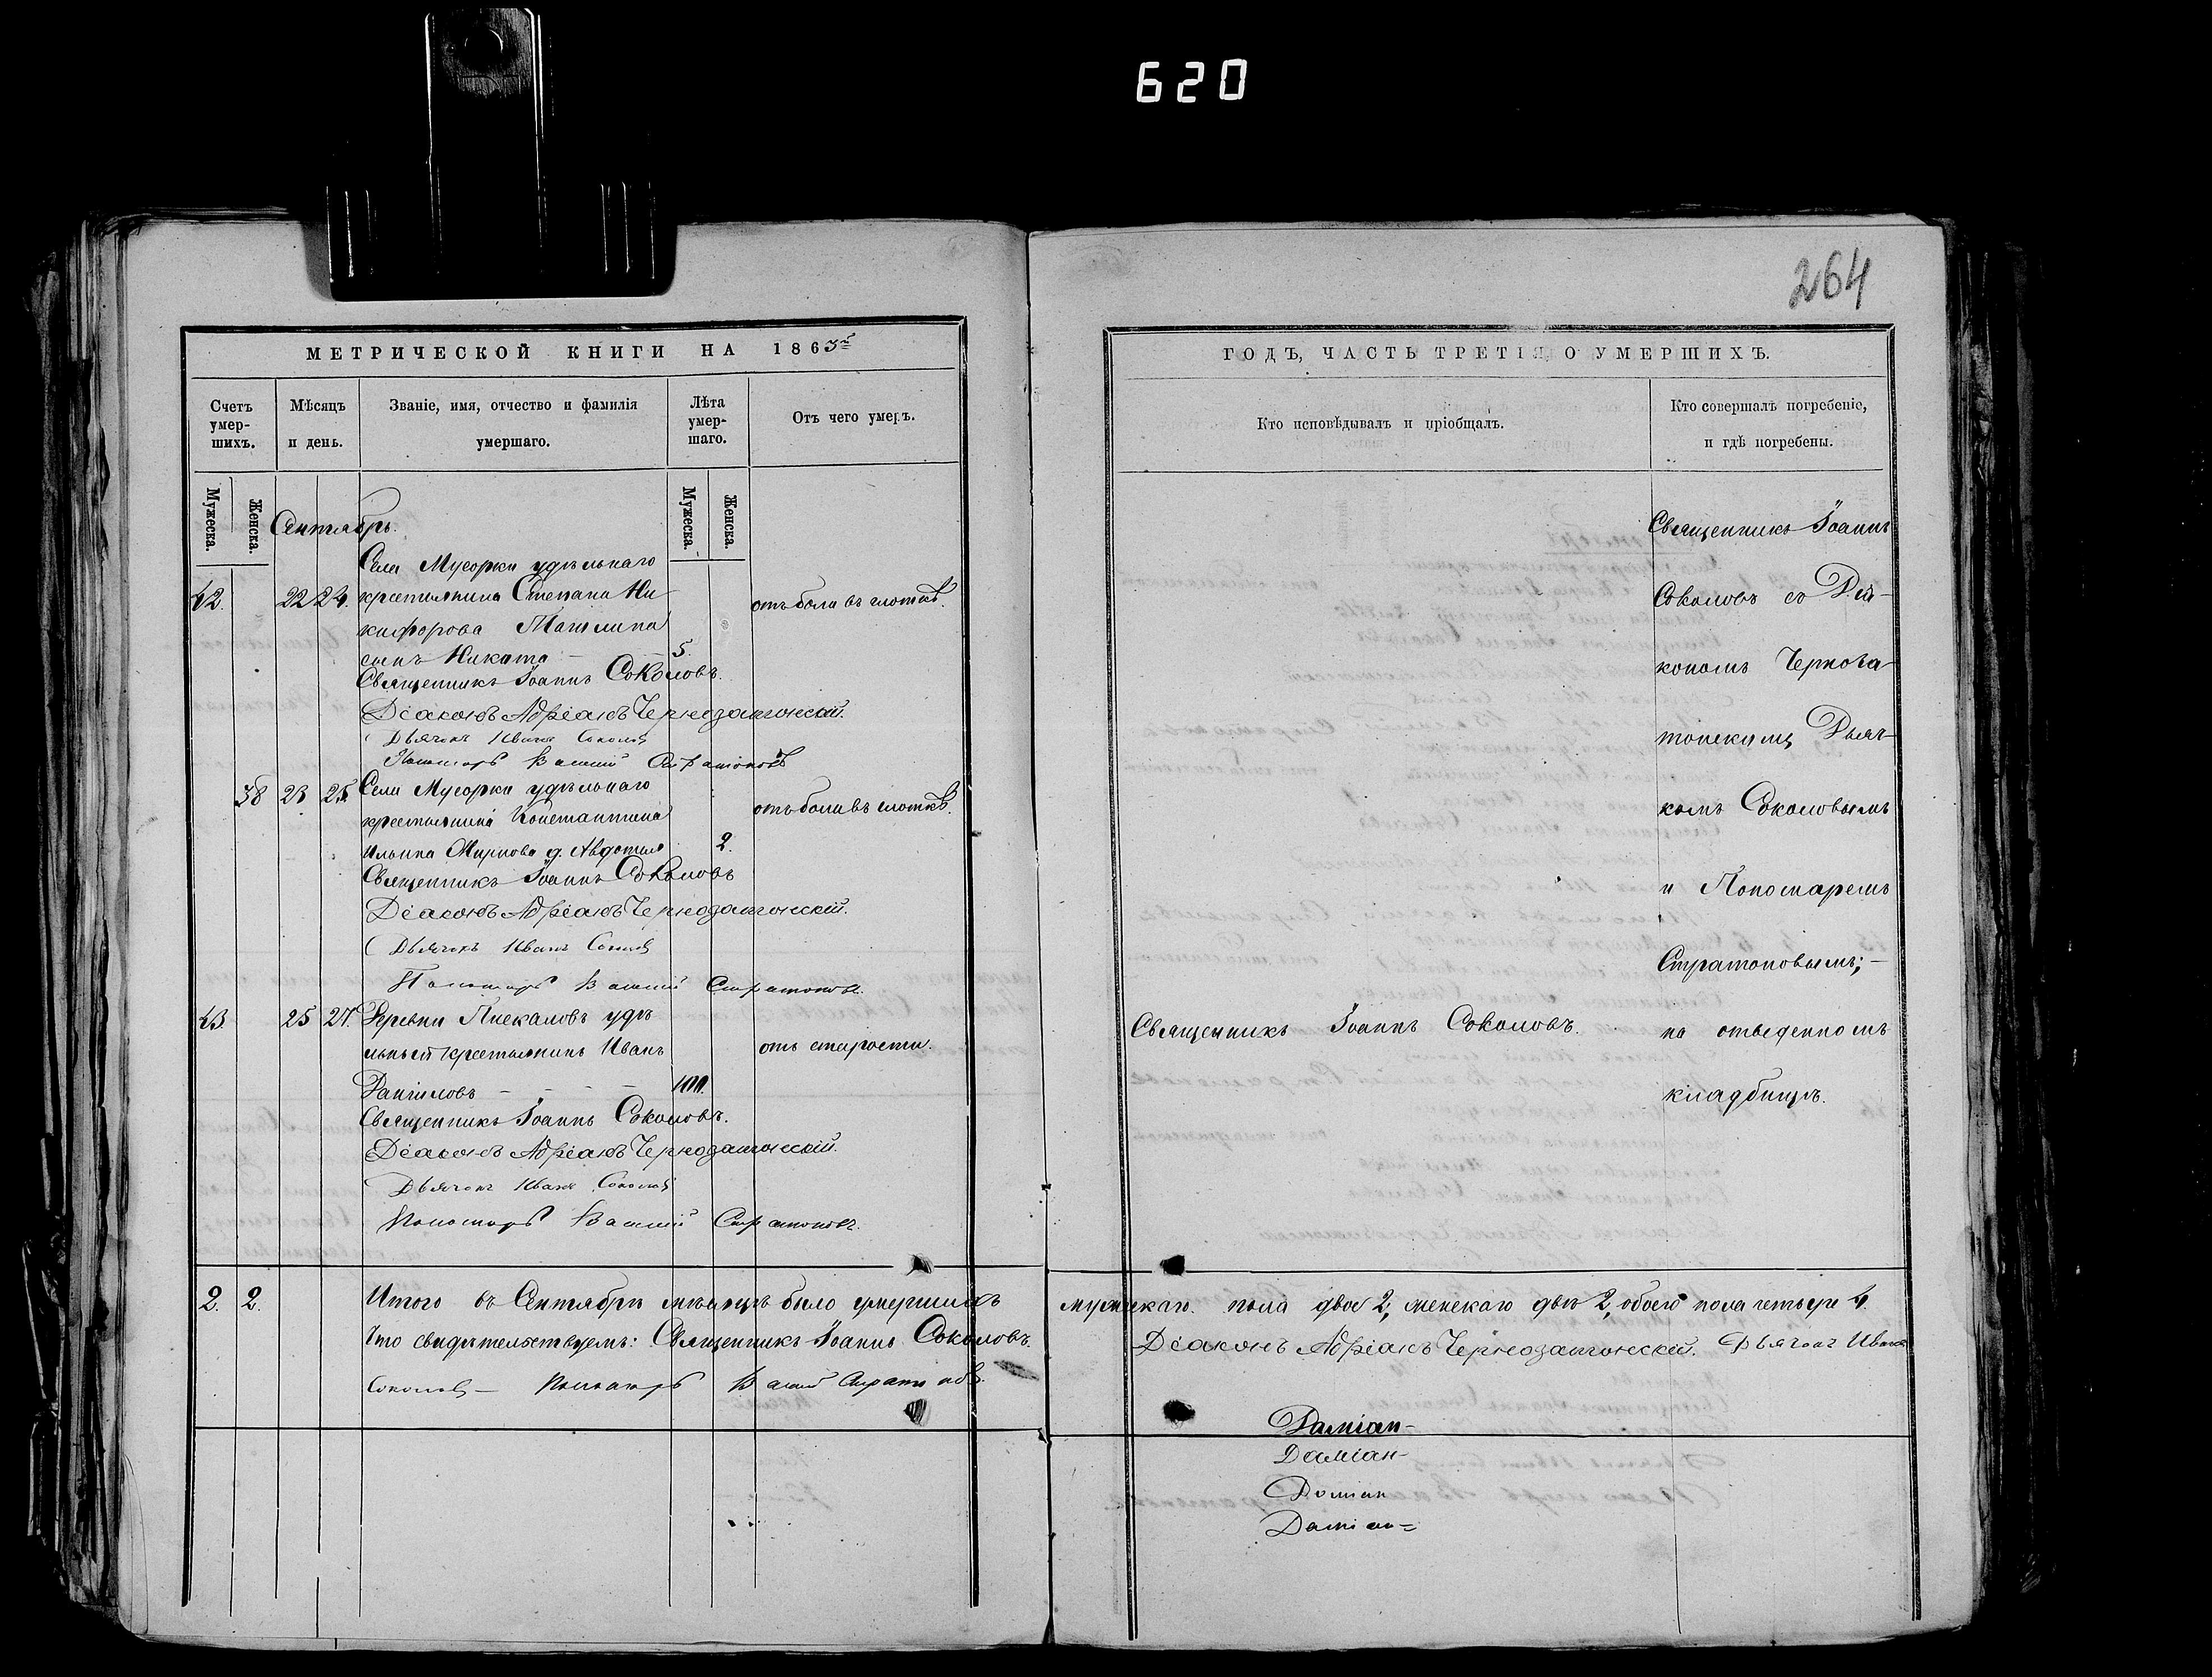 620
264
МЕТРИЧЕСКОЙ КНИГИ НА 1863й
Счетъ умерших. Мѣсяцъ и день. Званіе, имя, отчество и фамилія умершаго. Лѣта умершаго. Отъ чего умеръ.
Мужеска. Женска. Мужеска. Женска.
Сентябрь.
Села Мусорки удѣльнаго
42. 22 24. крестьянина Степана Ни- отъ боли въ глоткѣ.
кифорова
сынъ Никита 5.
Священникъ Іоаннъ Соколовъ.
Діаконъ Адріанъ Чернозатонскій.
Дьячекъ Иванъ Соколовъ
Пономарь Василій Стратоновъ
38 23 25. Села Мусорки удѣльнаго
крестьянина Константина отъ боли въ глоткѣ.
Ильина Мирнова д. Авдотья 2.
Священникъ Іоаннъ Соколовъ
Діаконъ Адріанъ Чернозатонскій.
Дьячекъ Иванъ Соколовъ
Пономарь Василій Стратоновъ.
43. 25 27. Деревни Пискаловъ удѣ-
льный крестьянинъ Иванъ отъ старости.
Даниловъ - - - - 100.
Священникъ Іоаннъ Соколовъ.
Діаконъ Адріанъ Чернозатонскій.
Дьячекъ Иванъ Соколовъ
Пономарь Василій Стратоновъ.
2. 2. Итого въ Сентябрѣ мѣсяцѣ было умершихъ
Что свидѣтельствуемъ: Священникъ Іоаннъ Соколовъ.
Соколовъ - Пономарь Василій Стратоновъ.
ГОДЪ, ЧАСТЬ ТРЕТІЯ, О УМЕРШИХЪ.
Кто исповѣдывалъ и пріобщалъ. Кто совершалъ погребеніе, и гдѣ погребены.
Священникъ Іоаннъ
Соколовъ съ Діа-
кономъ Чернова-
тонскимъ, Дьяч-
комъ Соколовымъ
и Пономаремъ
Стратоновымъ; -
Священникъ Іоаннъ Соколовъ. на отведенномъ
кладбищѣ.
мужескаго пола двое 2, женскаго двѣ 2, обоего пола четыре 4.
Діаконъ Адріанъ Чернозатонскій. Дьячекъ Иванъ
Даміан-
Даміан-
Даміан
Даміан=